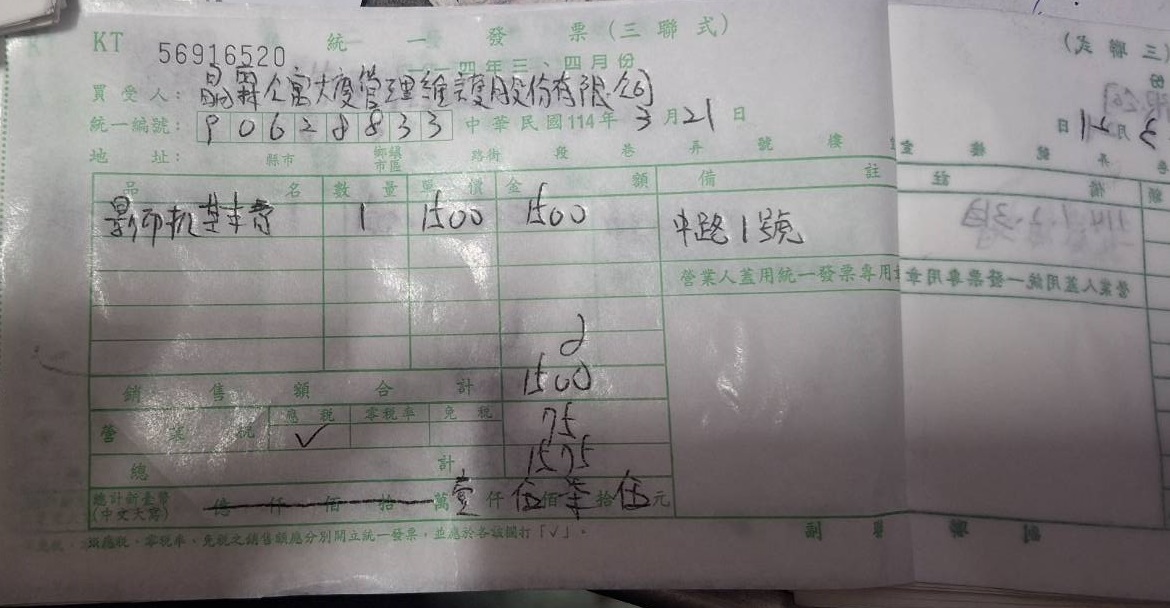 KT 56916520 統一發票(三聯式)
一一四年三、四月份
買受人: 晶霖公寓大廈管理維護股份有限公司
統一編號: 90628833 中華民國114年3月21日
地址: 縣市 鄉鎮市區 路街 段 巷 弄 號 樓 室
品名 數量 單價 金額 備註
影印機基本費 1 1500 1500
中路1號
營業人蓋用統一發票專用章
銷售額合計 1500
營業稅 應稅 ✓ 零稅率 免稅 75
總計 1575
總計新臺幣(中文大寫) 億仟佰拾萬壹仟伍佰柒拾伍元
應稅、零稅率、免稅之銷售額應分別開立統一發票,並應於各該欄打「V」。
副